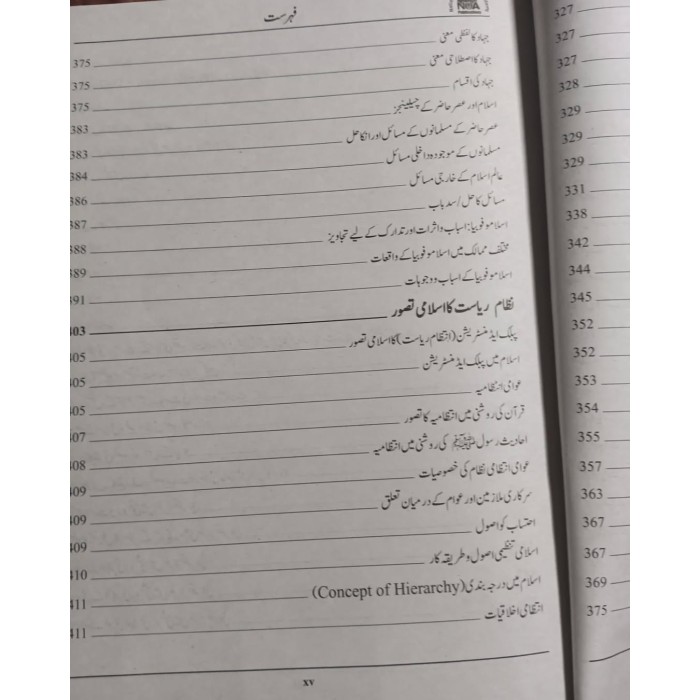 فہرست
جہاد کا لفظی معنی 375
جہاد کا اصطلاحی معنی 375
جہاد کی اقسام 375
اسلام اور عصر حاضر کے چیلینجز 383
عصر حاضر کے مسلمانوں کے مسائل اور انکا حل 383
مسلمانوں کے موجودہ داخلی مسائل 384
عالم اسلام کے خارجی مسائل 386
مسائل کا حل/سد باب 387
اسلاموفوبیا: اسباب و اثرات اور تدارک کے لیے تجاویز 388
مختلف ممالک میں اسلاموفوبیا کے واقعات 389
اسلاموفوبیا کے اسباب و وجوہات 391
نظام ریاست کا اسلامی تصور 403
پبلک ایڈمنسٹریشن (انتظام ریاست) کا اسلامی تصور 405
اسلام میں پبلک ایڈمنسٹریشن 405
عوامی انتظامیہ 405
قرآن کی روشنی میں انتظامیہ کا تصور 407
احادیث رسول ﷺ کی روشنی میں انتظامیہ 408
عوامی انتظامی نظام کی خصوصیات 409
سرکاری ملازمین اور عوام کے درمیان تعلق 409
احتساب کو اصول 409
اسلامی تنظیمی اصول و طریقہ کار 410
اسلام میں درجہ بندی (Concept of Hierarchy) 411
انتظامی اخلاقیات 411
xv
327
327
327
328
329
329
329
331
338
342
344
345
352
352
353
354
355
357
363
367
367
369
375